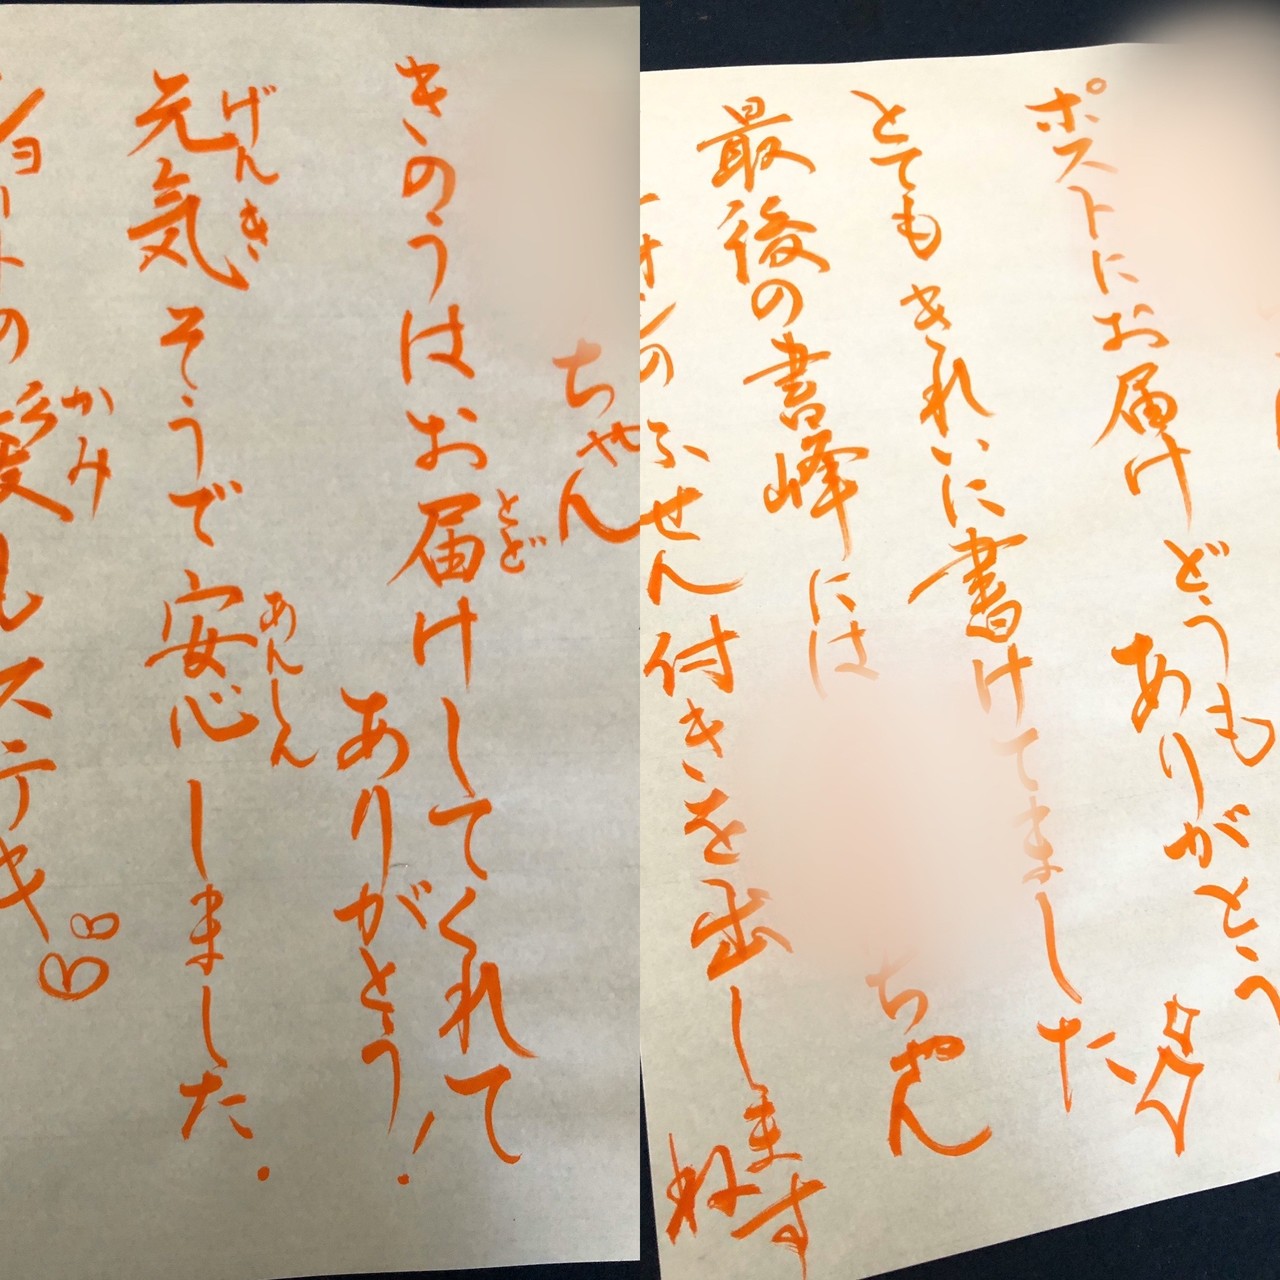 ポストにお届け
どうも
ありがとう
とてもきれいに書けてました
最後の書峰には
ちゃん
のふせん付きを出しますね
ちゃん
きのうはお届けしてくれて
とど
ありがとう!
元気そうで安心しました.
げんき
あんしん
ショートの髪もステキ
かみ